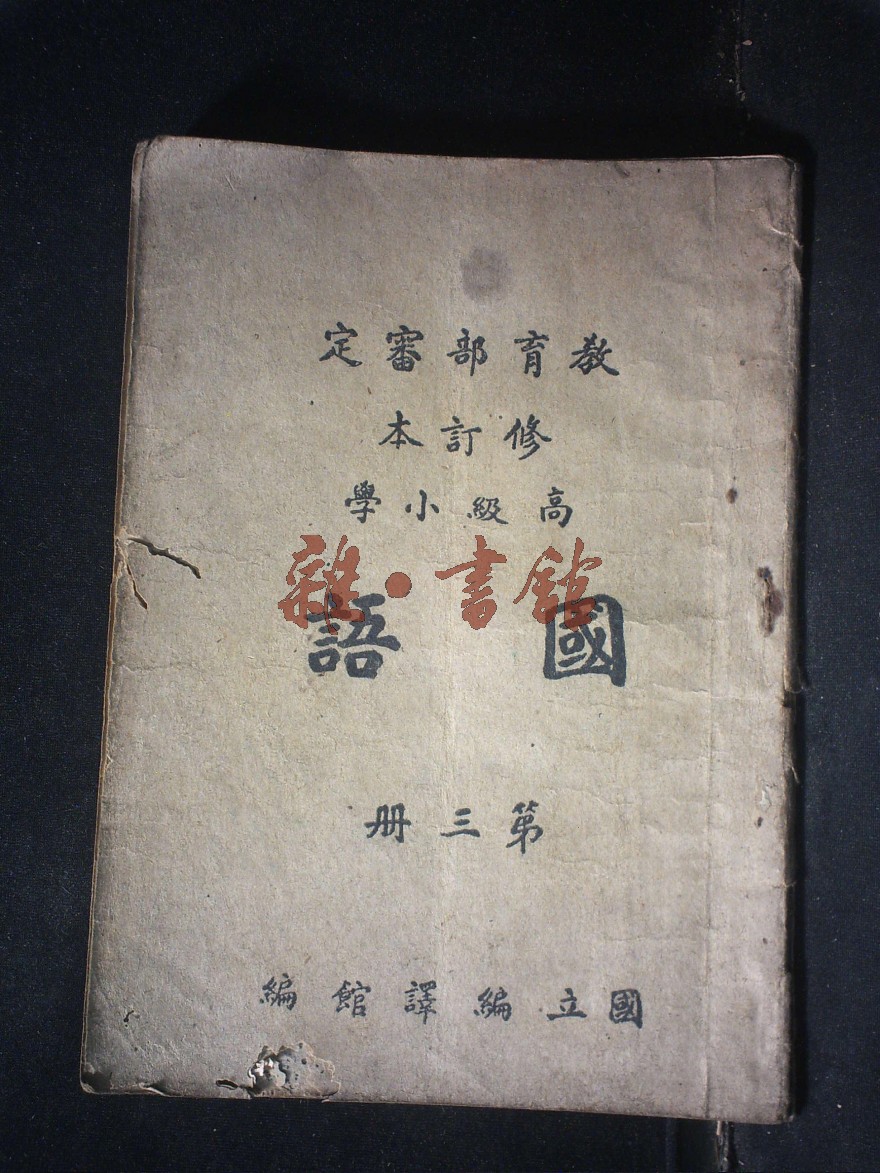 教育部審定
修訂本
高級小學
雜·書館
國語
第三册
國立編譯館編